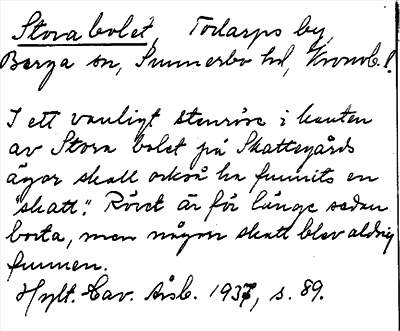 Stora bolet, Todarps by,
Berga sn, Sunnerbo hd, Kronob. l.
I ett vanligt stenröse i kanten
av Stora bolet på Skattegårds
ägor skall också ha funnits en
"skatt". Röset är för länge sedan
borta, men någon skatt blev aldrig
funnen.
Hylt. Cav. Årsb. 1937, s. 89.